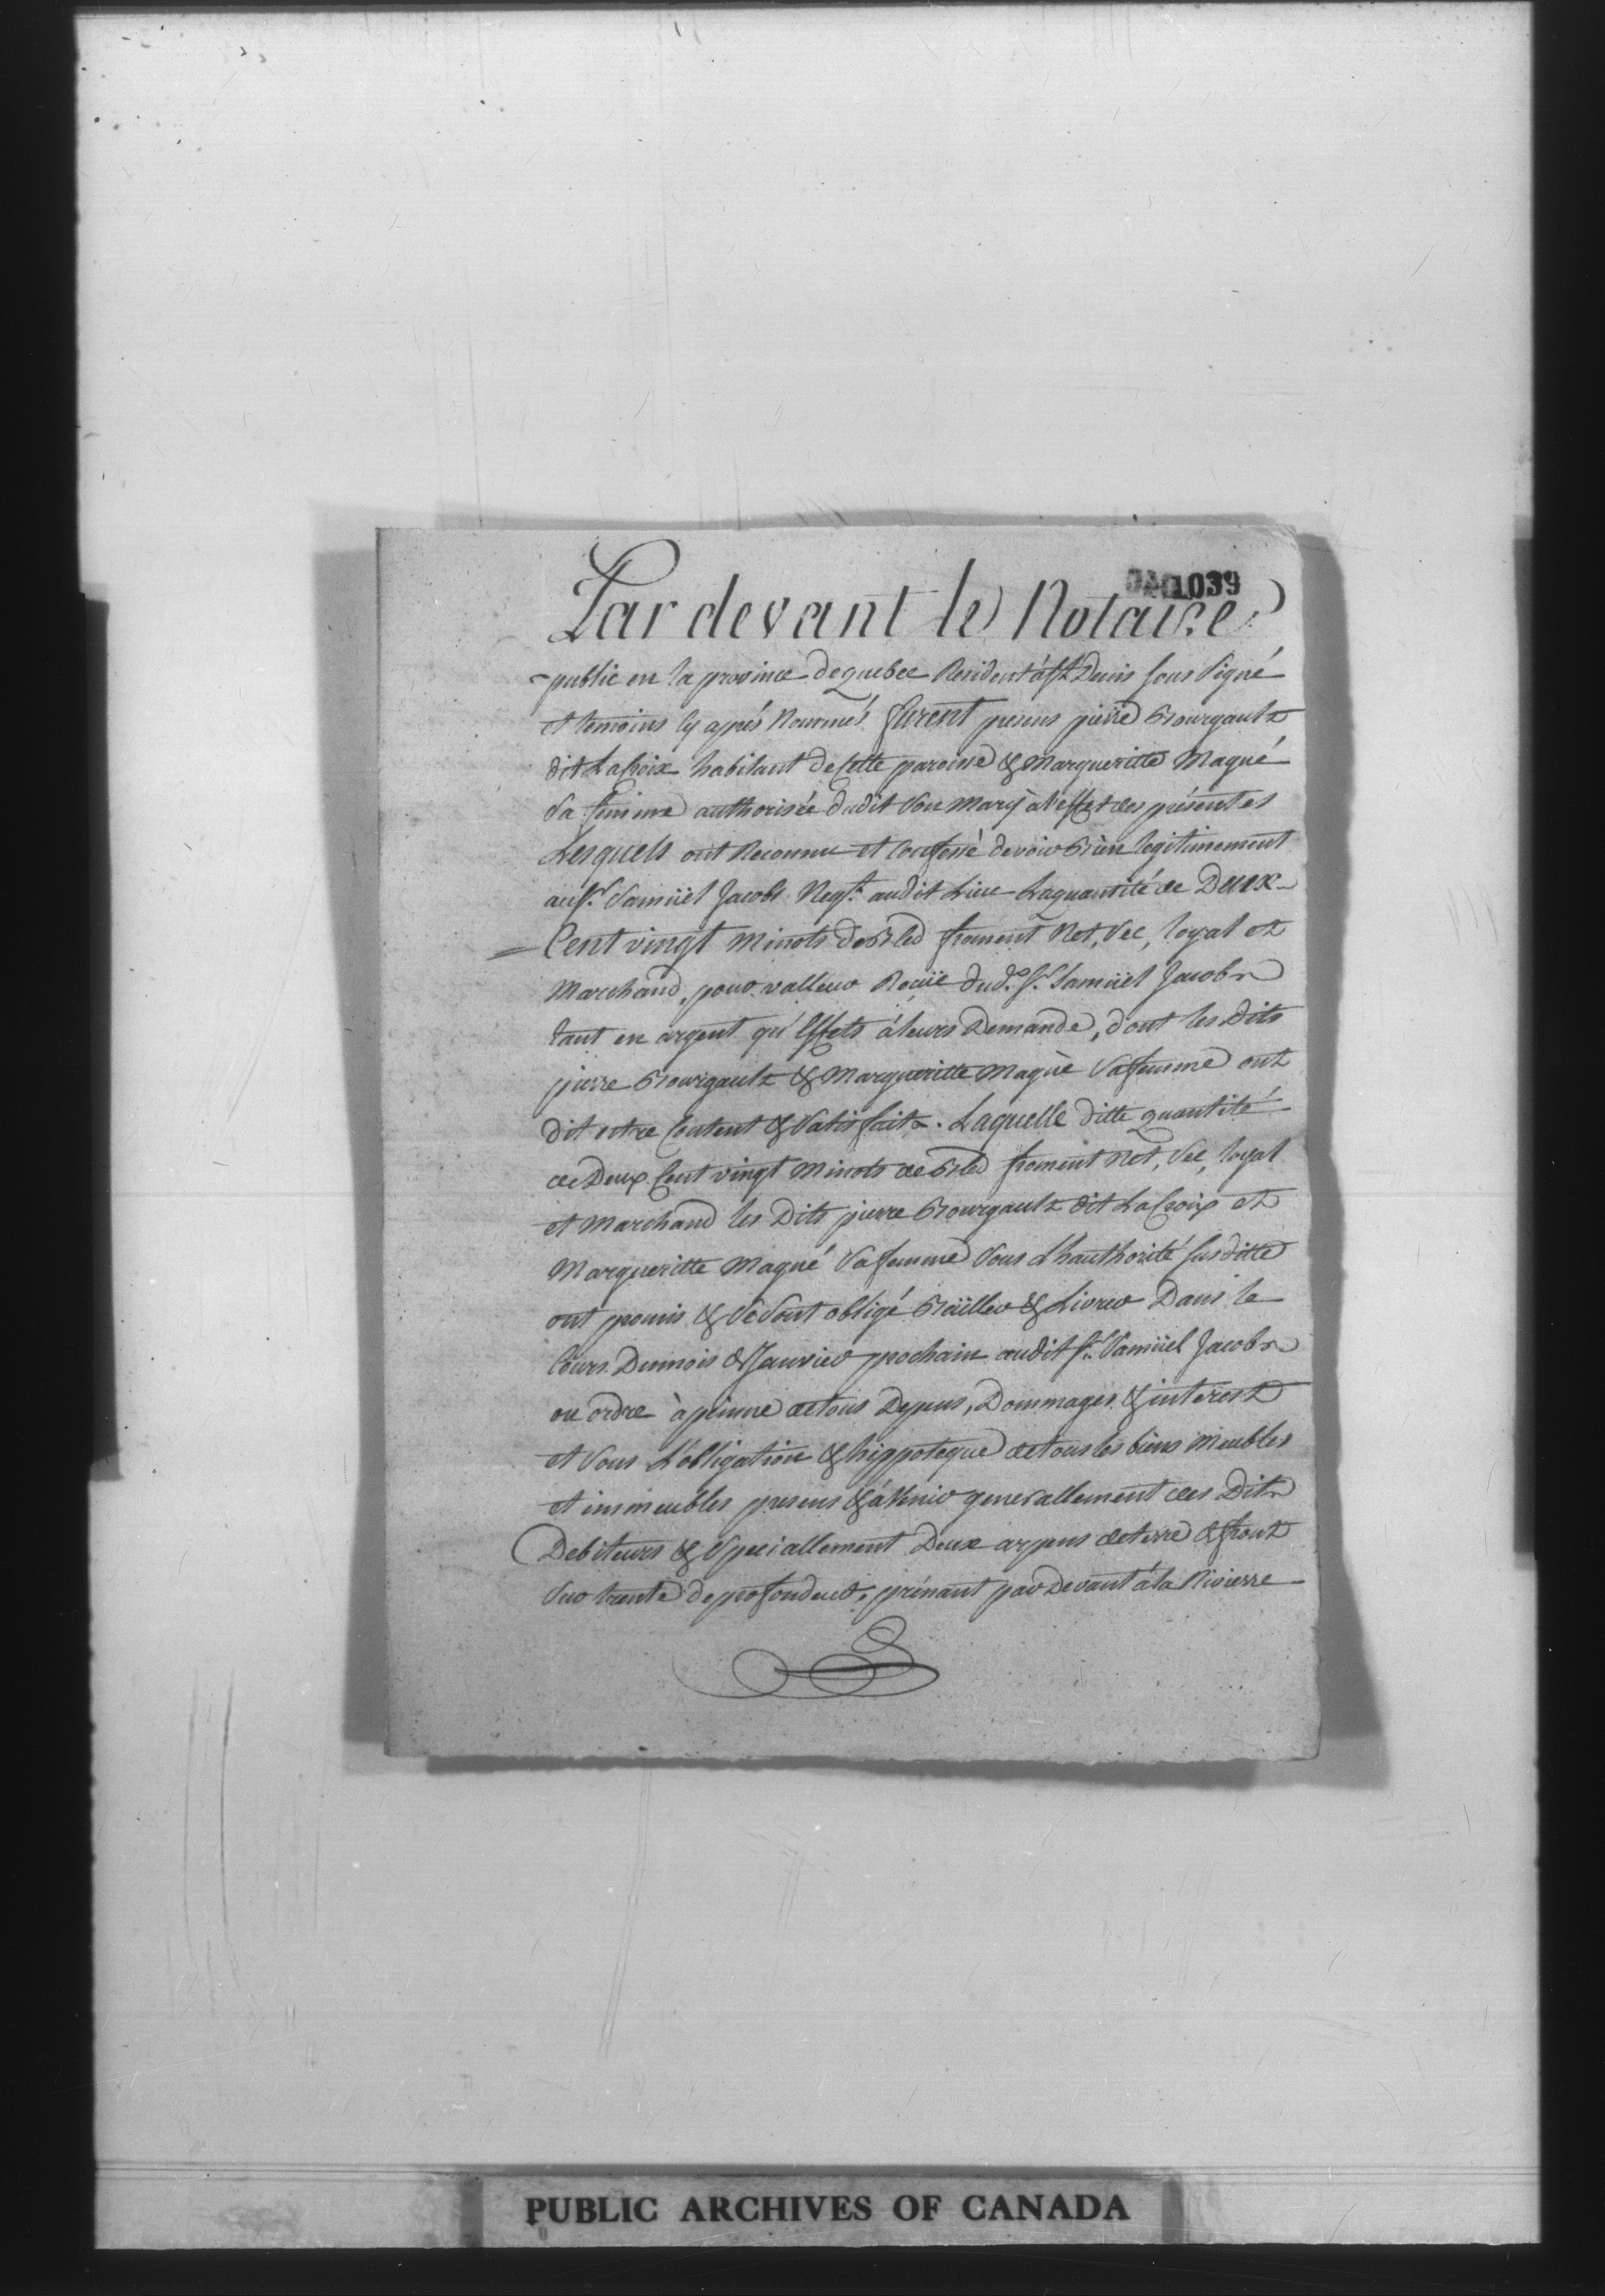 1039
Par devant le Notaire
public en la province de quebec Resident à St. Denis sous signé
et temoins cy après Nommés furent presens pierre Bourgault
dit LaCroix habitant de Cette paroisse & Margueritte Magué
Sa femme authorisée dudit Son Mary à l'effet des présentes
Lesquels ont Reconnu et Confessé devoir Bien legitimement
au Sr. Samüel Jacobs Negt. audit Lieu La quantité de Deux
Cent vingt Minots de Bled froment Net, Sec, loyal et
Marchand, pour valleur Recüe dud. Sr. Samüel Jacobs
tant en argent qu'Effets à leurs Demande, dont les Dits
pierre Bourgault & Margueritte Magué Sa femme ont
dit estre Content & Satisfait. Laquelle ditte quantité
de Deux Cent vingt Minots de Bled froment Net, Sec, loyal
et Marchand les Dits pierre Bourgault dit LaCroix et
Margueritte Magué Sa femme Sous l'hauthorité susditte
ont promis & Se Sont obligé Bailler & Livrer Dans le
Cours Du mois de Janvier prochain audit Sr. Samüel Jacobs
ou ordre à peinne de tous Depens, Dommages & interest
et Sous L'obligation & hippoteque de tous les biens Meubles
et immeubles presens & à Venir generallement des Dits
Debiteurs & Speciallement Deux arpens de terre de front
Sur trente de profondeur, prénant par Devant à la Rivierre
PUBLIC ARCHIVES OF CANADA